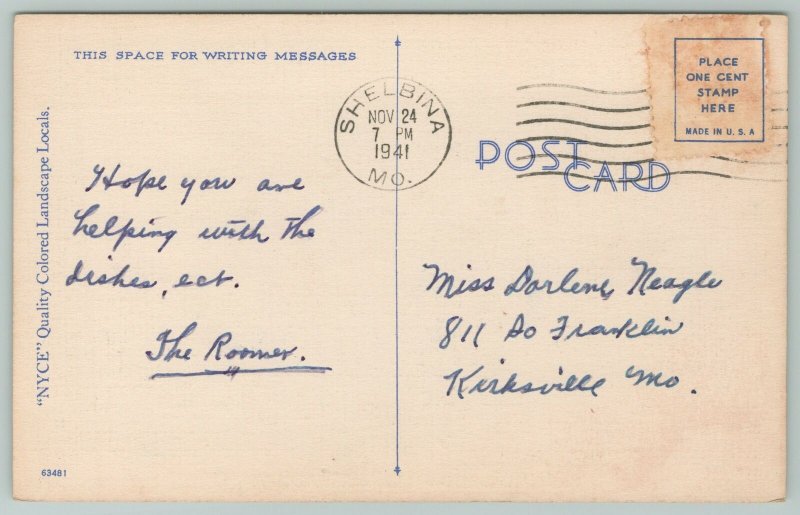 THIS SPACE FOR WRITING MESSAGES
"NYCE" Quality Colored Landscape Locals.
Hope you are
helping with the
dishes, ect.
The Roomer.
63481
SHELBINA
NOV 24
7 PM
1941
MO.
PLACE
ONE CENT
STAMP
HERE
MADE IN U.S.A
POST CARD
Miss Darlene Neagle
811 So Franklin
Kirksville Mo.